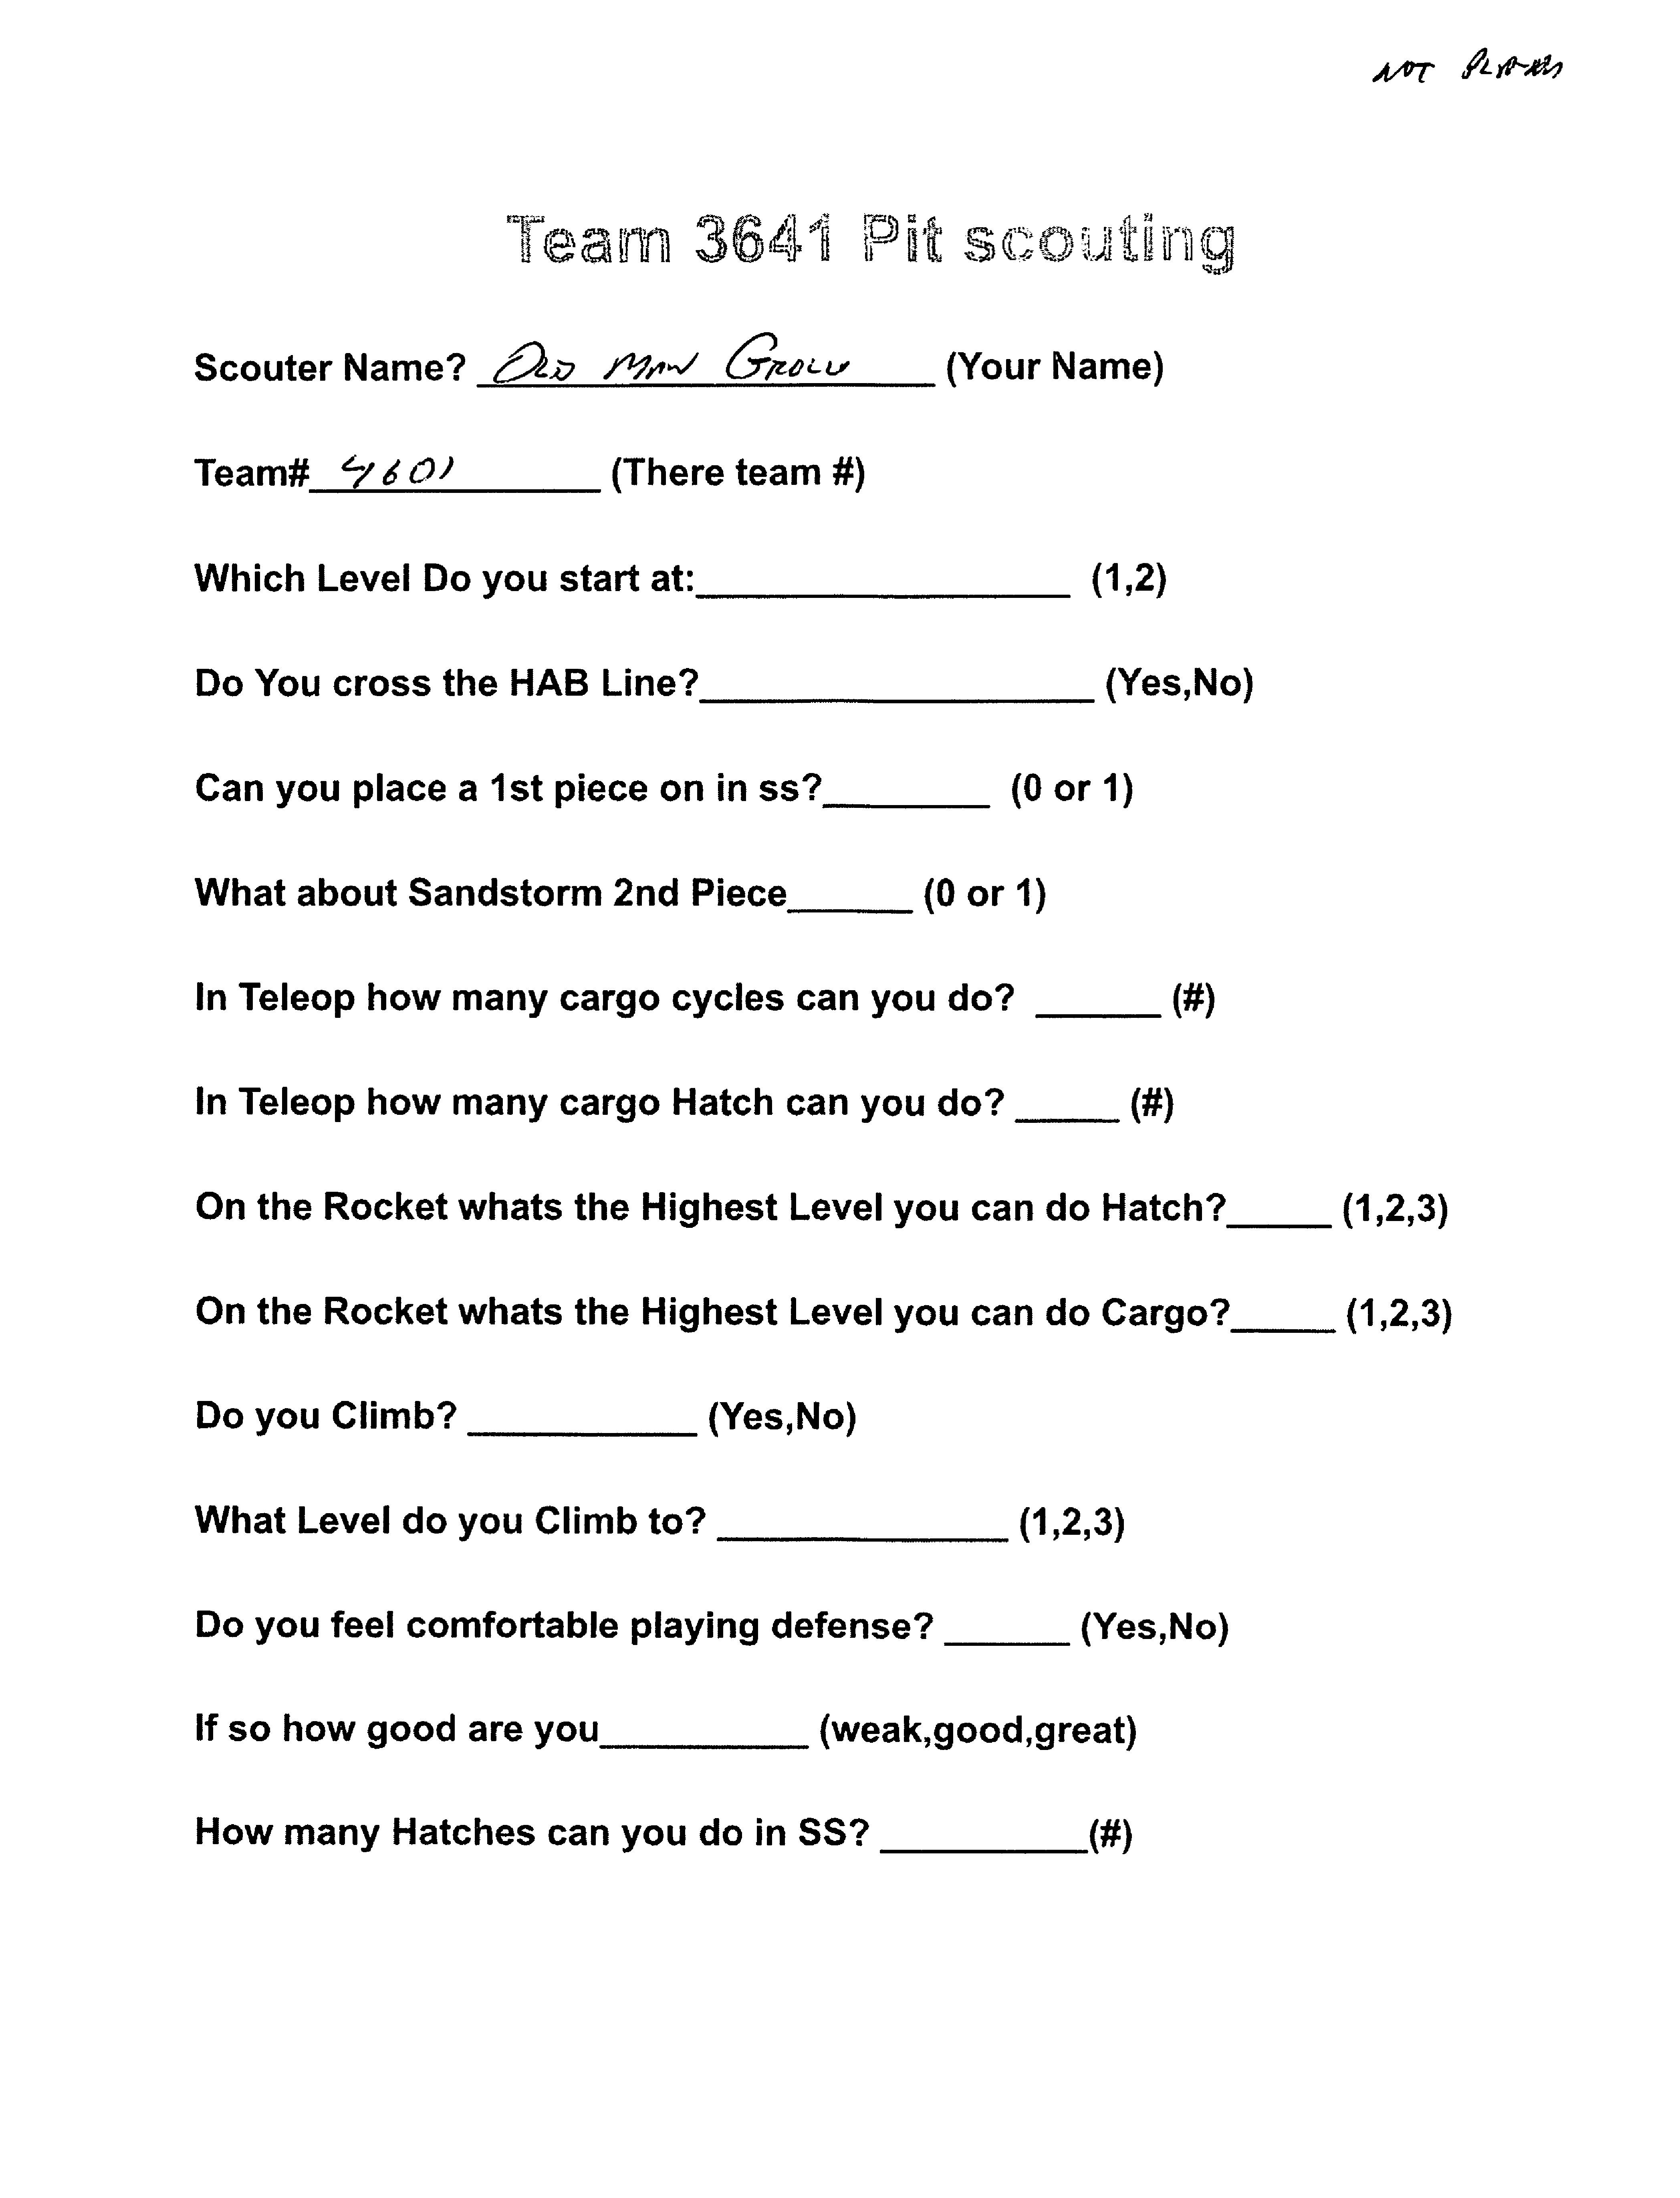 NOT
Team 3641 Pit scouting
Scouter Name? OLD MAN (Your Name)
Team# 4601 (There team #)
Which Level Do you start at:__________________ (1,2)
Do You cross the HAB Line?___________________ (Yes,No)
Can you place a 1st piece on in ss?________ (0 or 1)
What about Sandstorm 2nd Piece______ (0 or 1)
In Teleop how many cargo cycles can you do? ______ (#)
In Teleop how many cargo Hatch can you do? _____ (#)
On the Rocket whats the Highest Level you can do Hatch?_____ (1,2,3)
On the Rocket whats the Highest Level you can do Cargo?_____ (1,2,3)
Do you Climb? ___________ (Yes,No)
What Level do you Climb to? ______________ (1,2,3)
Do you feel comfortable playing defense? ______ (Yes,No)
If so how good are you__________ (weak,good,great)
How many Hatches can you do in SS? __________(#)